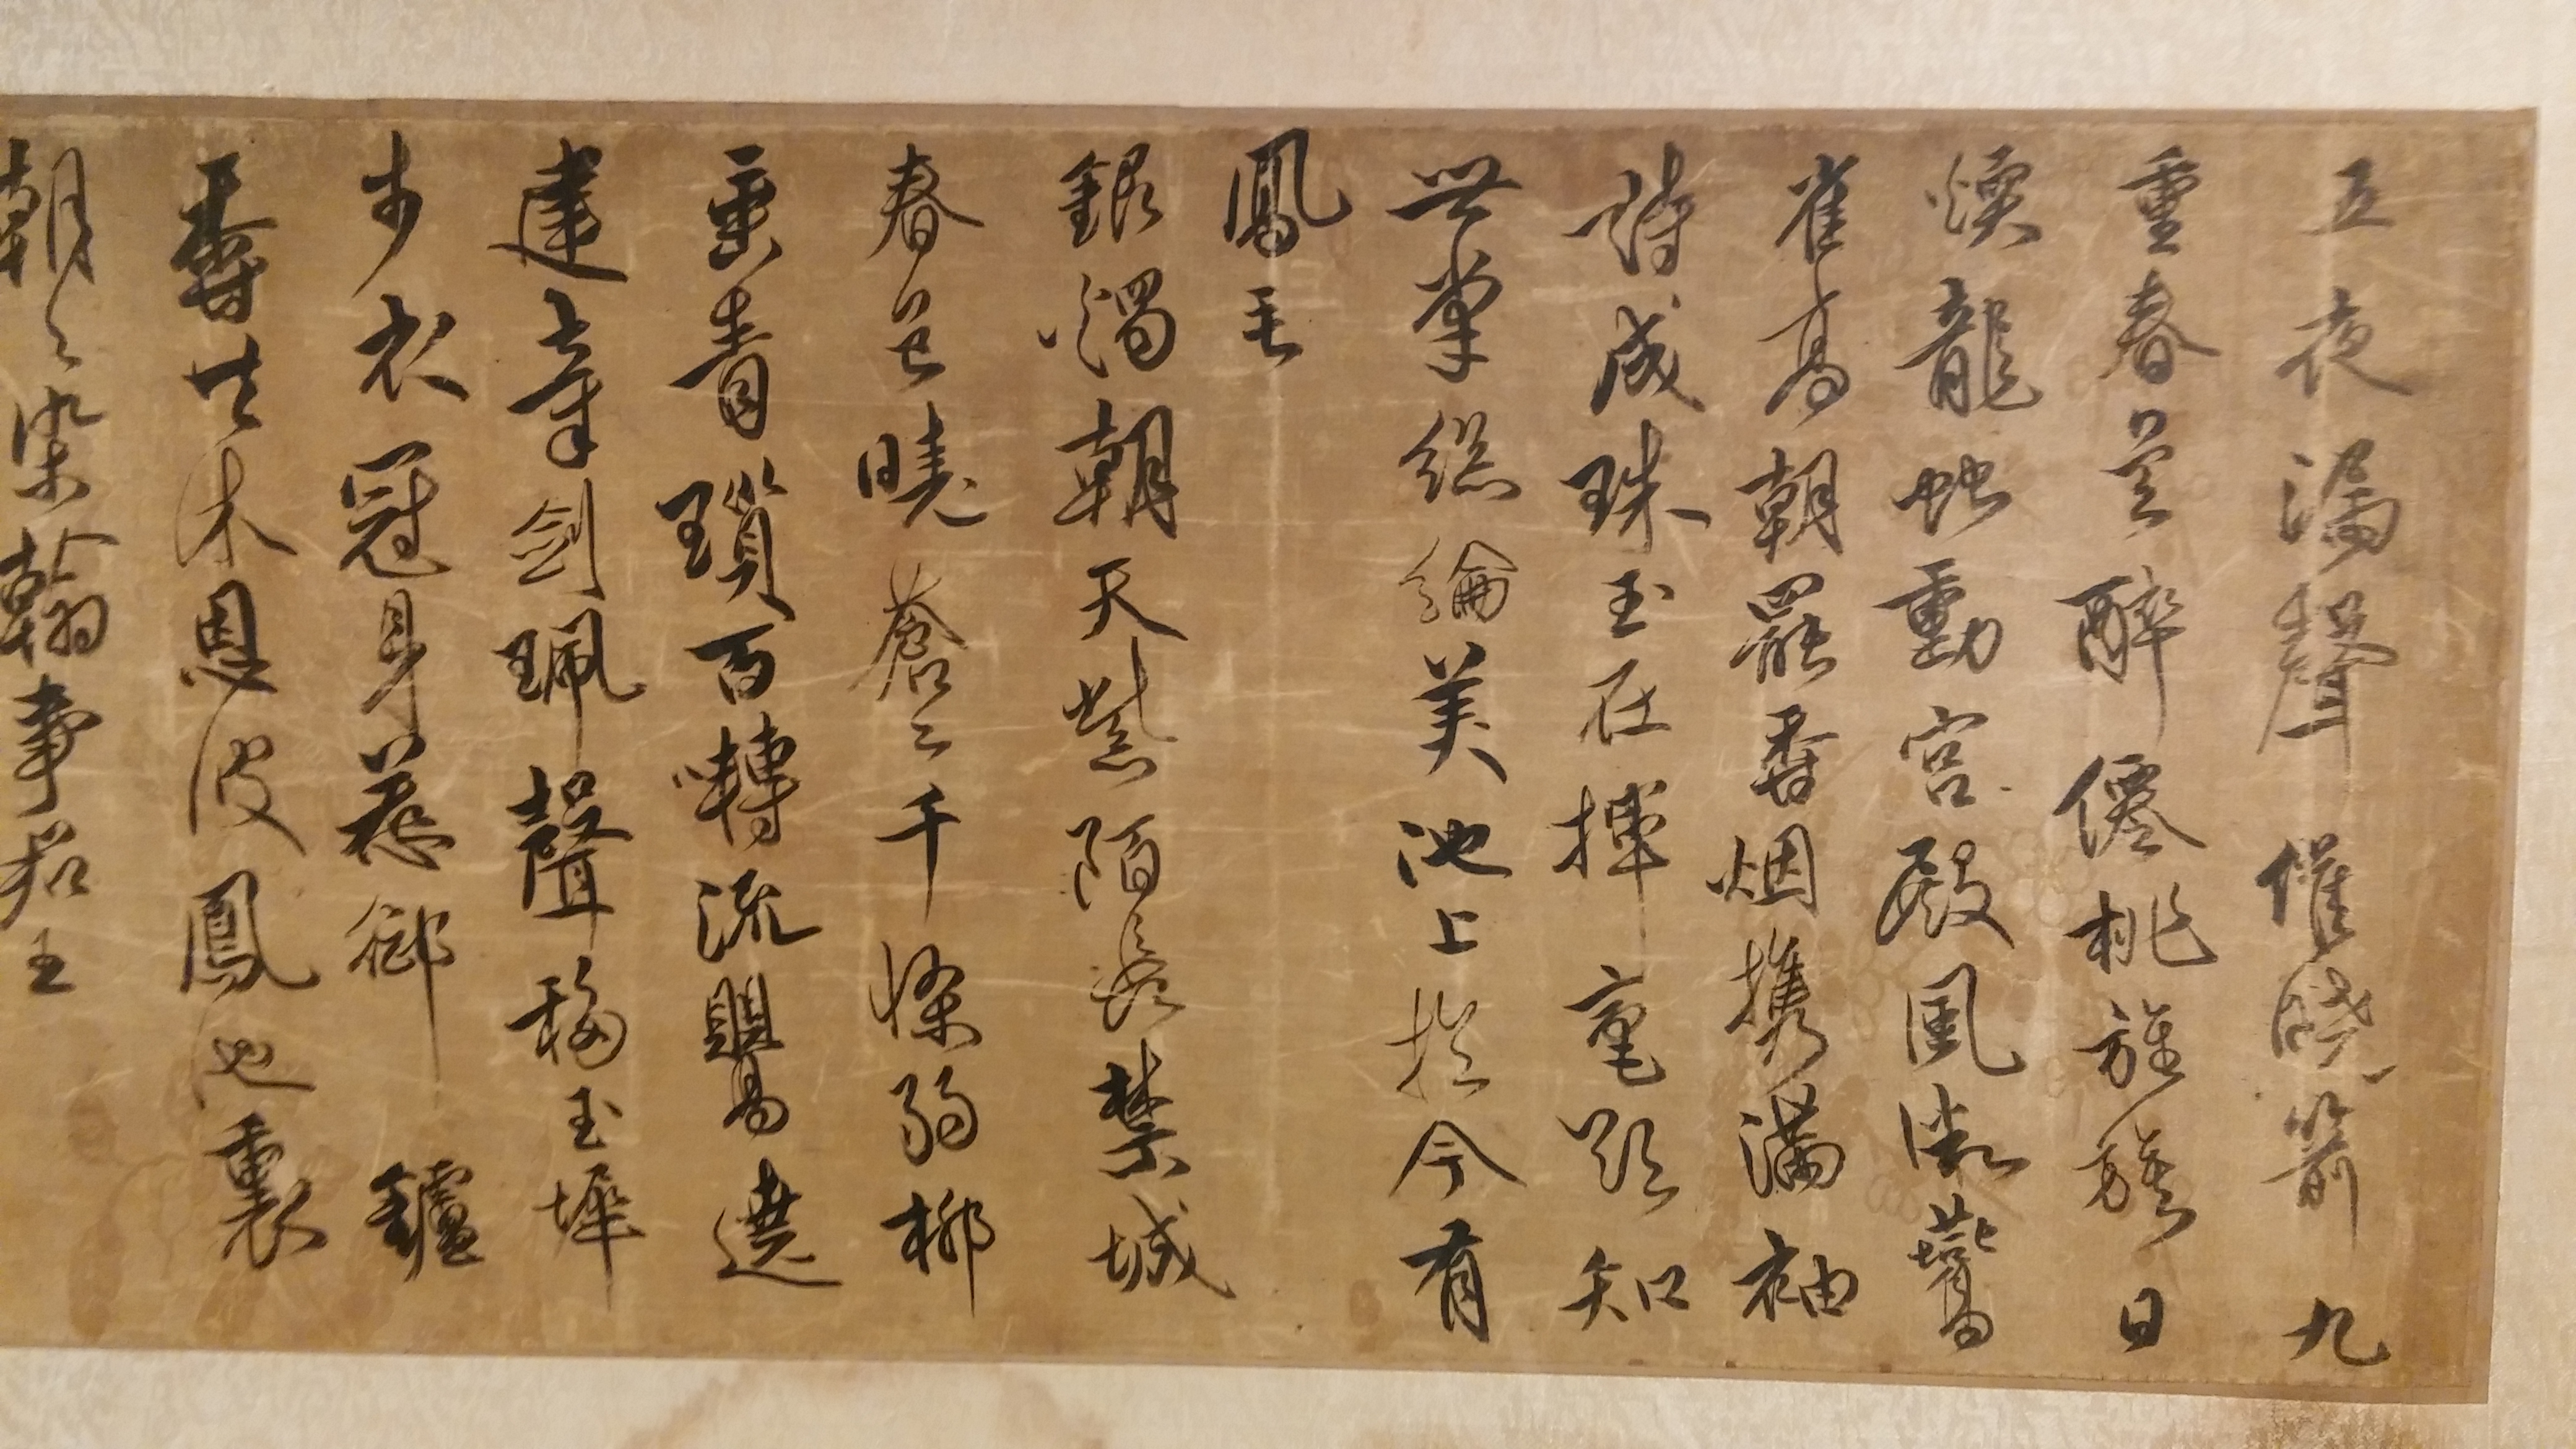 五夜漏聲催曉箭九
重春色醉僊桃旌旂日
煖龍蛇動宮殿風微鷰
雀高朝罷香烟携滿袖
詩成珠玉在揮毫欲知
世掌絲綸美池上於今有
鳳毛
銀燭朝天紫陌長禁城
春色曉蒼〻千條弱柳
垂青瑣百囀流鸎遶
建章劍珮聲移玉墀
步衣冠身惹御鑪
香共沐恩波鳳池裏
朝〻染翰事君王